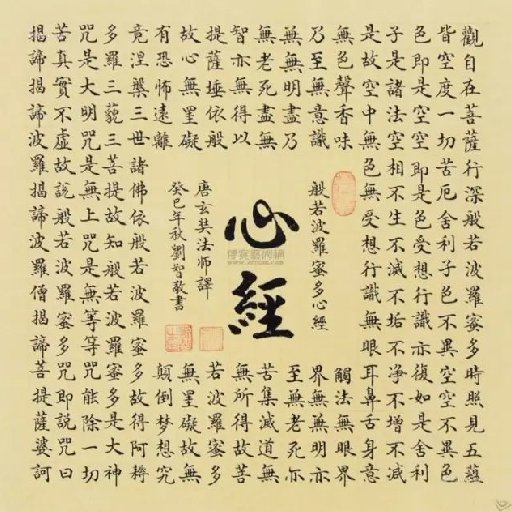 觀自在菩薩行深般若波羅蜜多時照見五蘊
皆空度一切苦厄舍利子色不異空空不異色
色即是空空即是色受想行識亦復如是舍利
子是諸法空相不生不滅不垢不淨不增不減
是故空中無色無受想行識無眼耳鼻舌身意
無色聲香味
觸法無眼界
乃至無意識
界無無明亦
無無明盡乃
至無老死亦
無老死盡無
苦集滅道無
智亦無得以
無所得故菩
提薩埵依般
若波羅蜜多
故心無罣礙
無罣礙故無
有恐怖遠離
顛倒夢想究
竟涅槃三世諸佛依般若波羅蜜多故得阿耨
多羅三藐三菩提故知般若波羅蜜多是大神
咒是大明咒是無上咒是無等等咒能除一切
苦真實不虛故說般若波羅蜜多咒即說咒曰
揭諦揭諦波羅揭諦波羅僧揭諦菩提薩婆訶
般若波羅蜜多心經
心經
唐玄奘法師譯
癸巳年秋劉智書